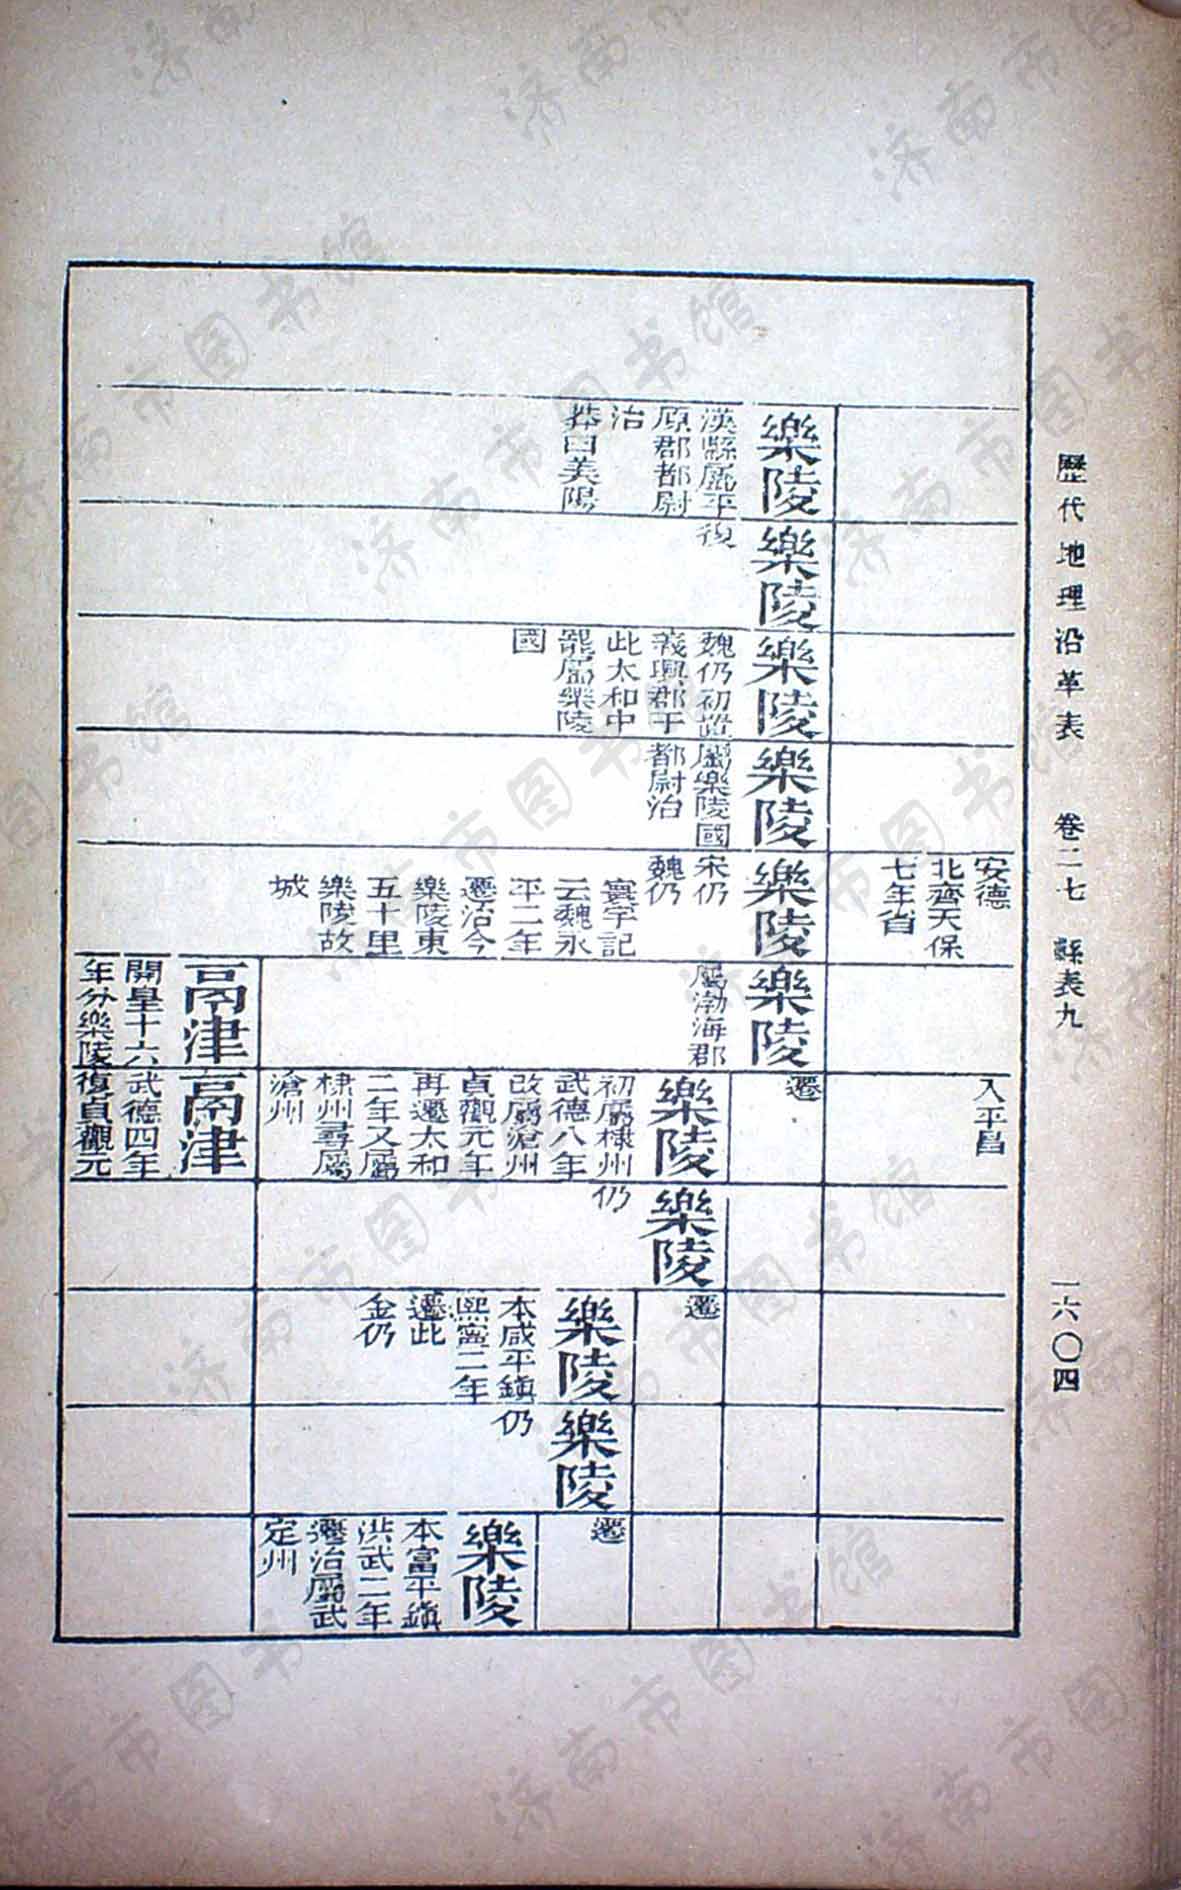 歷代地理沿革表 卷二七 縣表九 一六〇四
安德
北齊天保
七年省
入平昌
樂陵
漢縣屬平
原郡都尉
治
莽曰美陽
樂陵
後
樂陵
魏仍初置
義興郡于
此太和中
罷屬樂陵
國
樂陵
屬樂陵國
都尉治
樂陵
宋仍
魏仍
寰宇記
云魏永
平二年
遷治今
樂陵東
五十里
樂陵故
城
樂陵
屬渤海郡
遷
樂陵
初屬棣州
武德八年
改屬滄州
貞觀元年
再遷太和
二年又屬
棣州尋屬
滄州
樂陵
仍
遷
樂陵
本咸平鎮
熙寧二年
遷此
金仍
樂陵
仍
遷
樂陵
本富平鎮
洪武二年
遷治屬武
定州
鬲津
開皇十六
年分樂陵
鬲津
武德四年
復貞觀元
济南市图书馆